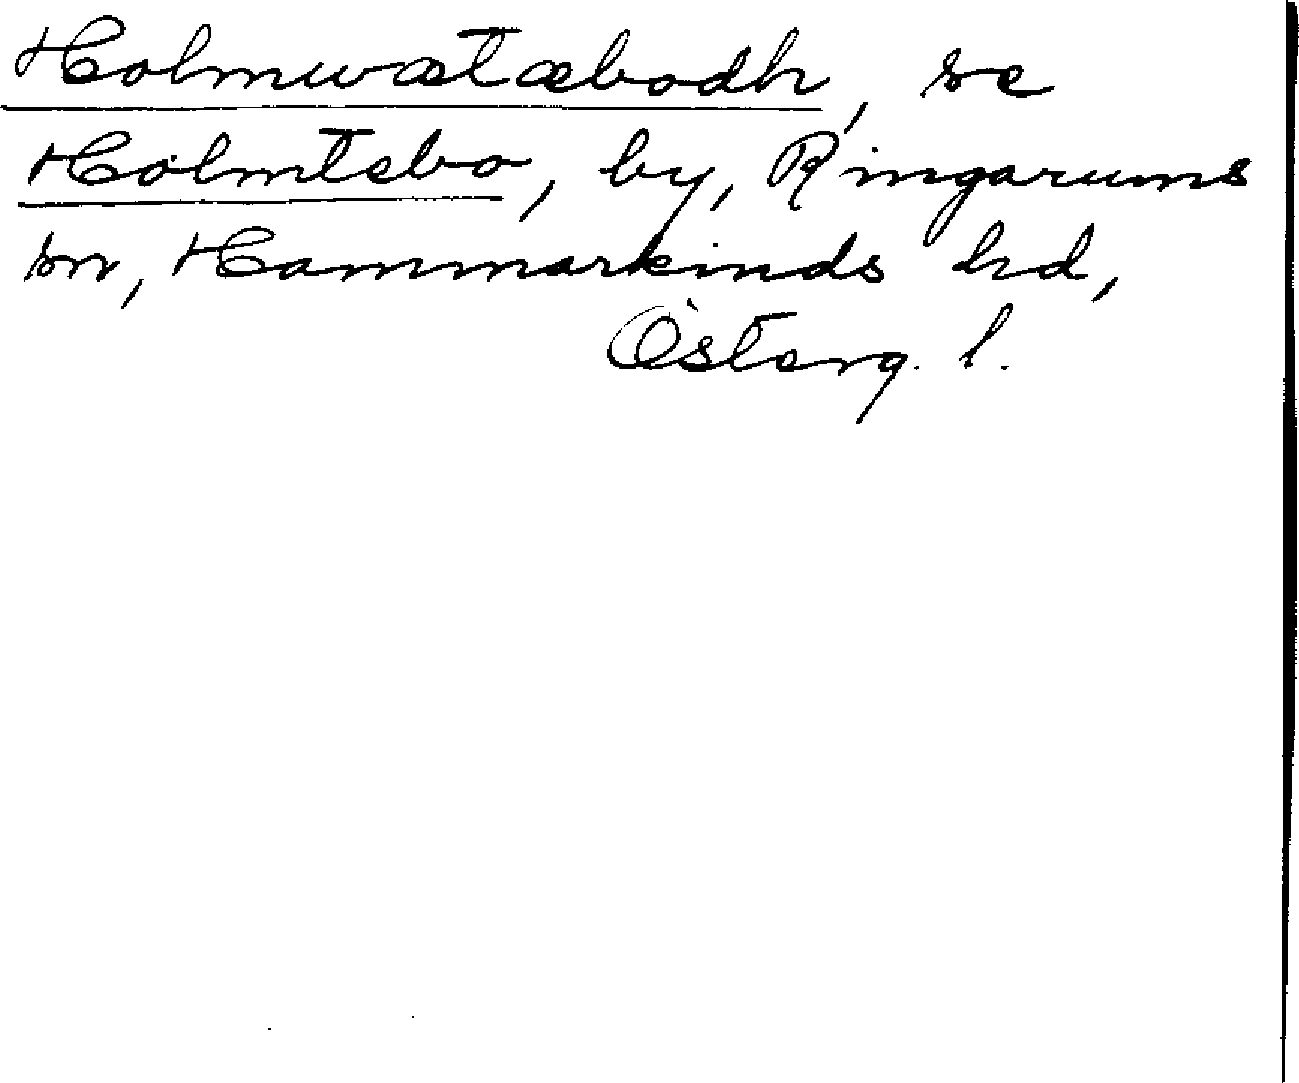 Holmwætæbodh, se
Holmtebo, by, Ringarums
sn, Hammarkinds hd,
Österg. l.